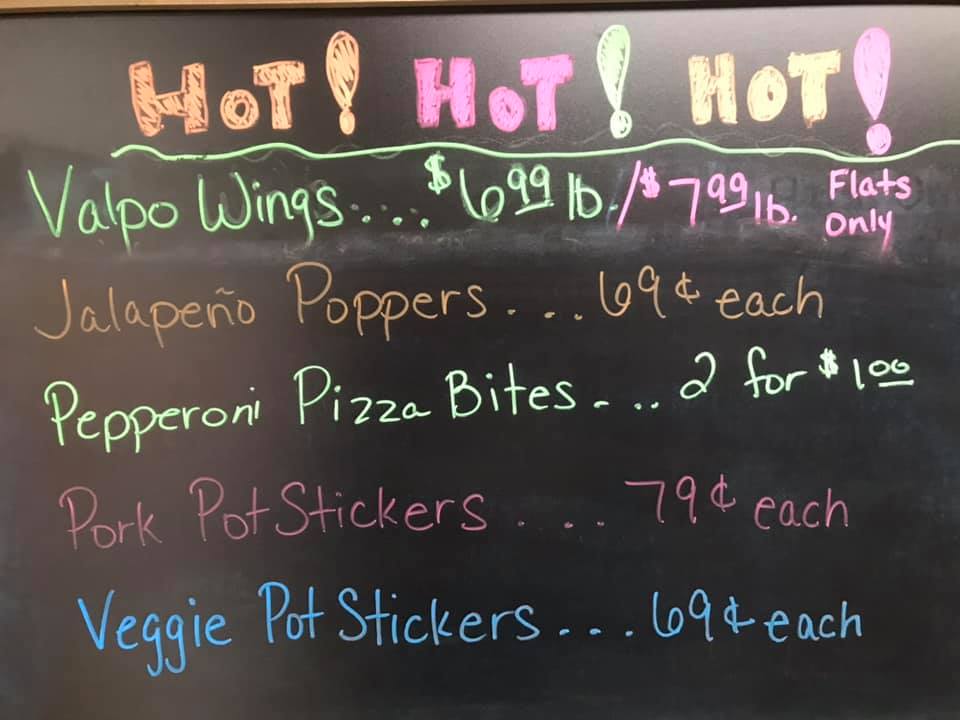 HOT! HOT! HOT!
Valpo Wings.... $6.99 lb./$7.99 lb. Flats Only
Jalapeño Poppers. ...69¢ each
Pepperoni Pizza Bites. ...2 for $1.00
Pork Pot Stickers .... 79¢ each
Veggie Pot Stickers....69¢ each